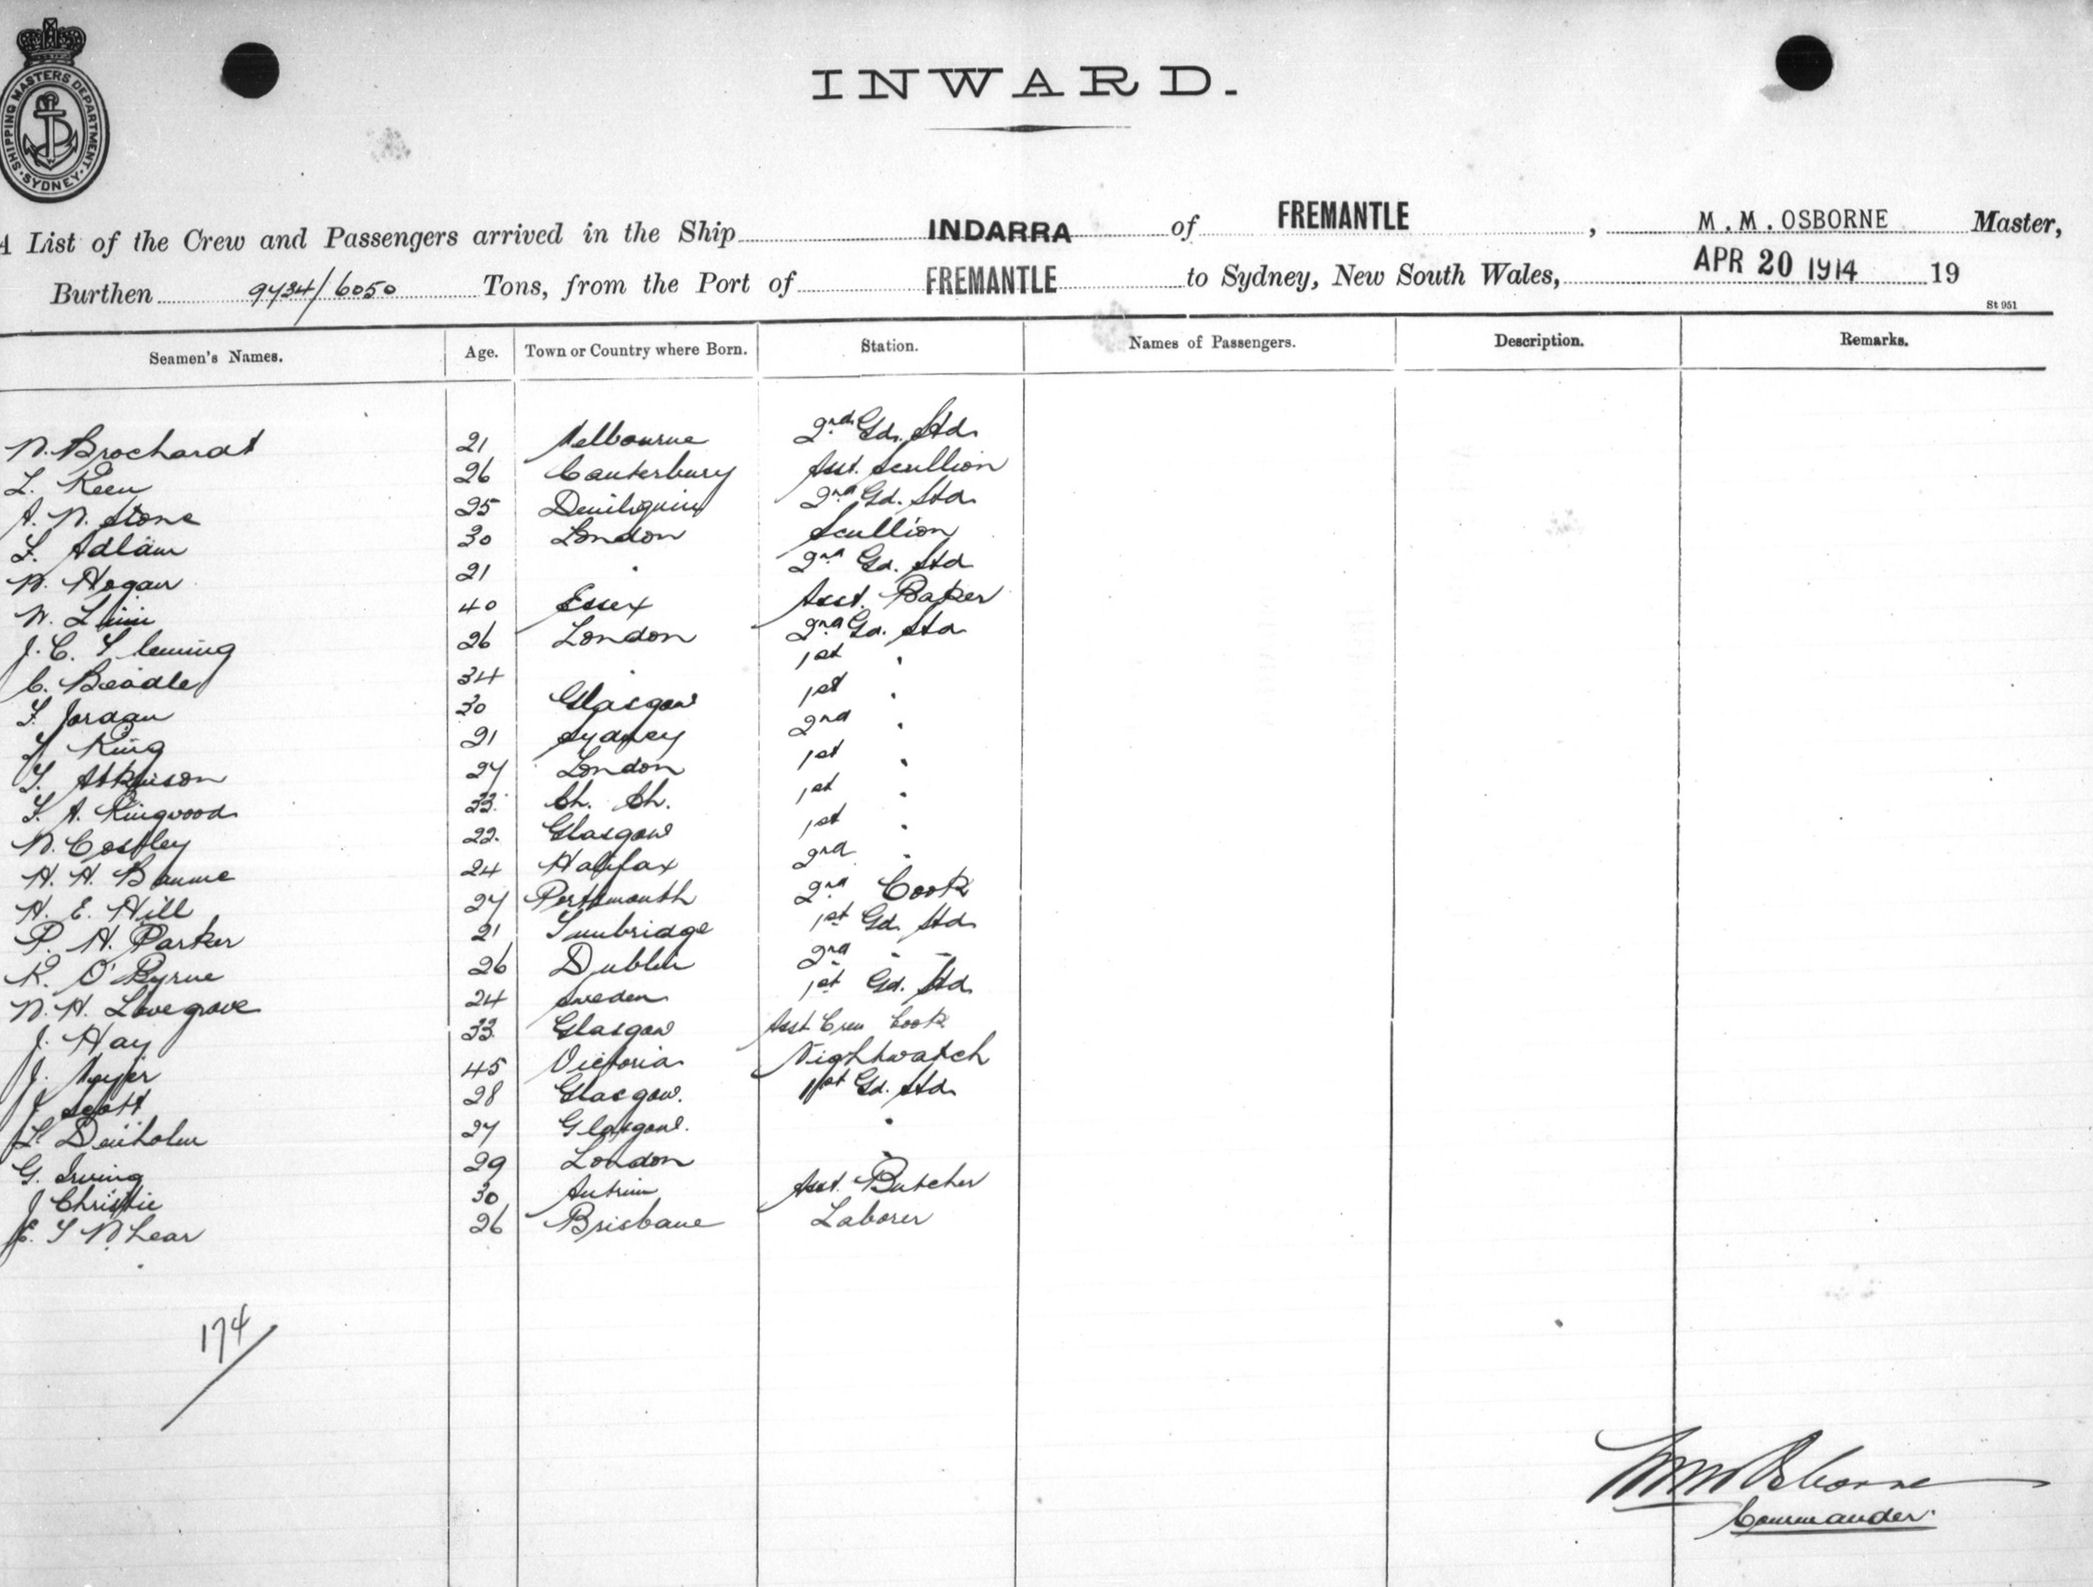 SHIPPING MASTERS DEPARTMENT · SYDNEY ·
INWARD.
A List of the Crew and Passengers arrived in the Ship INDARRA of FREMANTLE, M.M. OSBORNE Master,
Burthen 9734/6050 Tons, from the Port of FREMANTLE to Sydney, New South Wales, APR 20 1914 19
St 951
Seamen's Names. Age. Town or Country where Born. Station. Names of Passengers. Description. Remarks.
W. Brochardt 21 Melbourne 2nd Gd. Std
L. Keen 26 Canterbury Asst. Scullion
A. W. Stone 25 Deniliquin 2nd Gd. Std
F. Adlam 30 London Scullion
W. Hogan 21 " 2nd Gd. Std
W. 40 Essex Asst. Baker
J. C. Fleming 26 London 2nd Gd. Std
C. Beadle 34 " 1st "
F. Jordan 30 Glasgow 1st "
King 21 Sydney 2nd "
Atkinson 27 London 1st "
F. A. Ringwood 33 Ch. Ch. 1st "
W. Costley 22 Glasgow 1st "
H. H. Baume 24 Halifax 2nd "
H. E. Hill 27 Portsmouth 2nd Cook
P. H. Parker 21 Tunbridge 1st Gd. Std
R. O'Byrne 26 Dublin 2nd " "
W. H. Lovegrove 24 Sweden 1st Gd. Std
J. Hay 33 Glasgow Asst Crew Cook
J. 45 Victoria Nightwatch
J. Scott 28 Glasgow. 1st Gd. Std
L. Denholm 27 Glasgow. "
G. Irving 29 London "
J Christie 30 Antrim Asst. Butcher
E. 26 Brisbane Laborer
174/
M M Osborne
Commander.